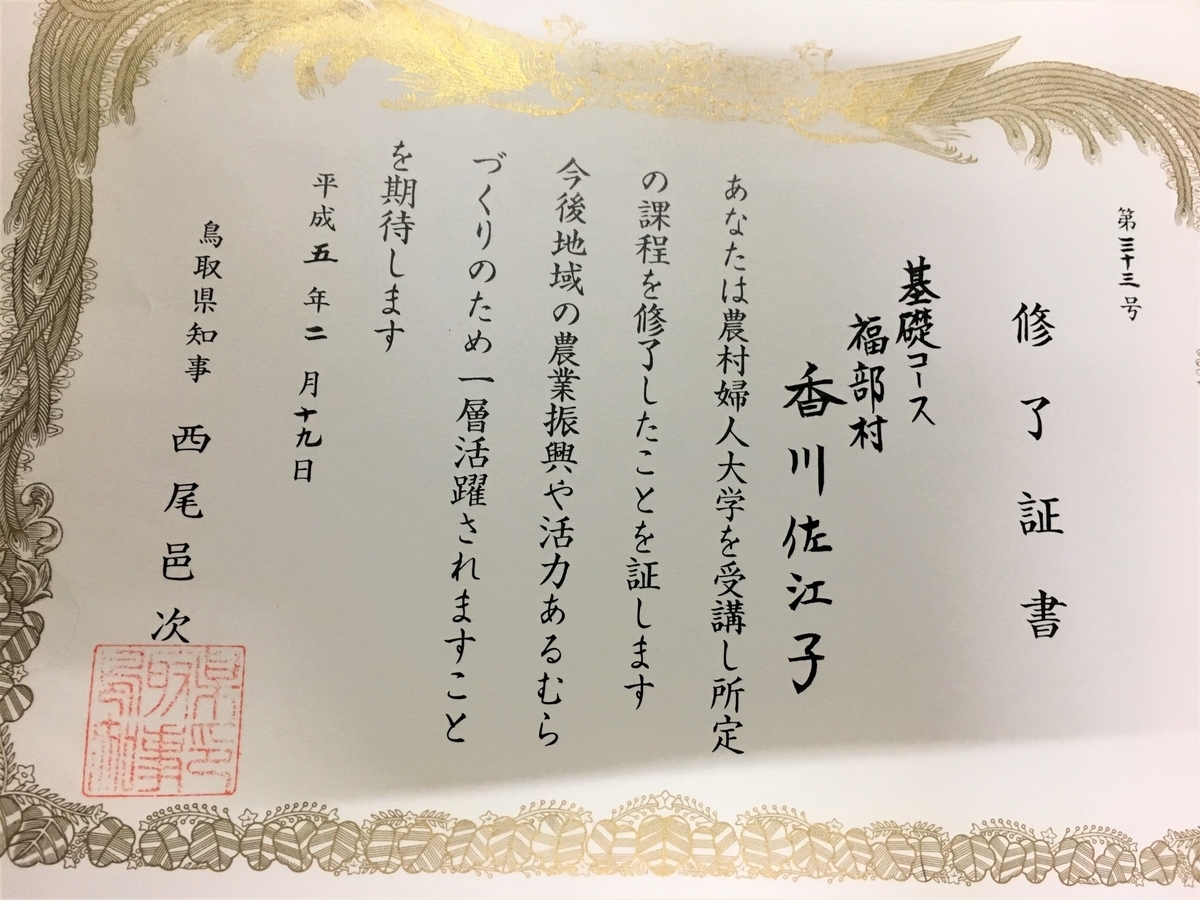 第三十三号
修了証書
基礎コース
福部村
香川佐江子
あなたは農村婦人大学を受講し所定
の課程を修了したことを証します
今後地域の農業振興や活力あるむら
づくりのため一層活躍されますこと
を期待します
平成五年二月十九日
鳥取県知事 西尾邑次